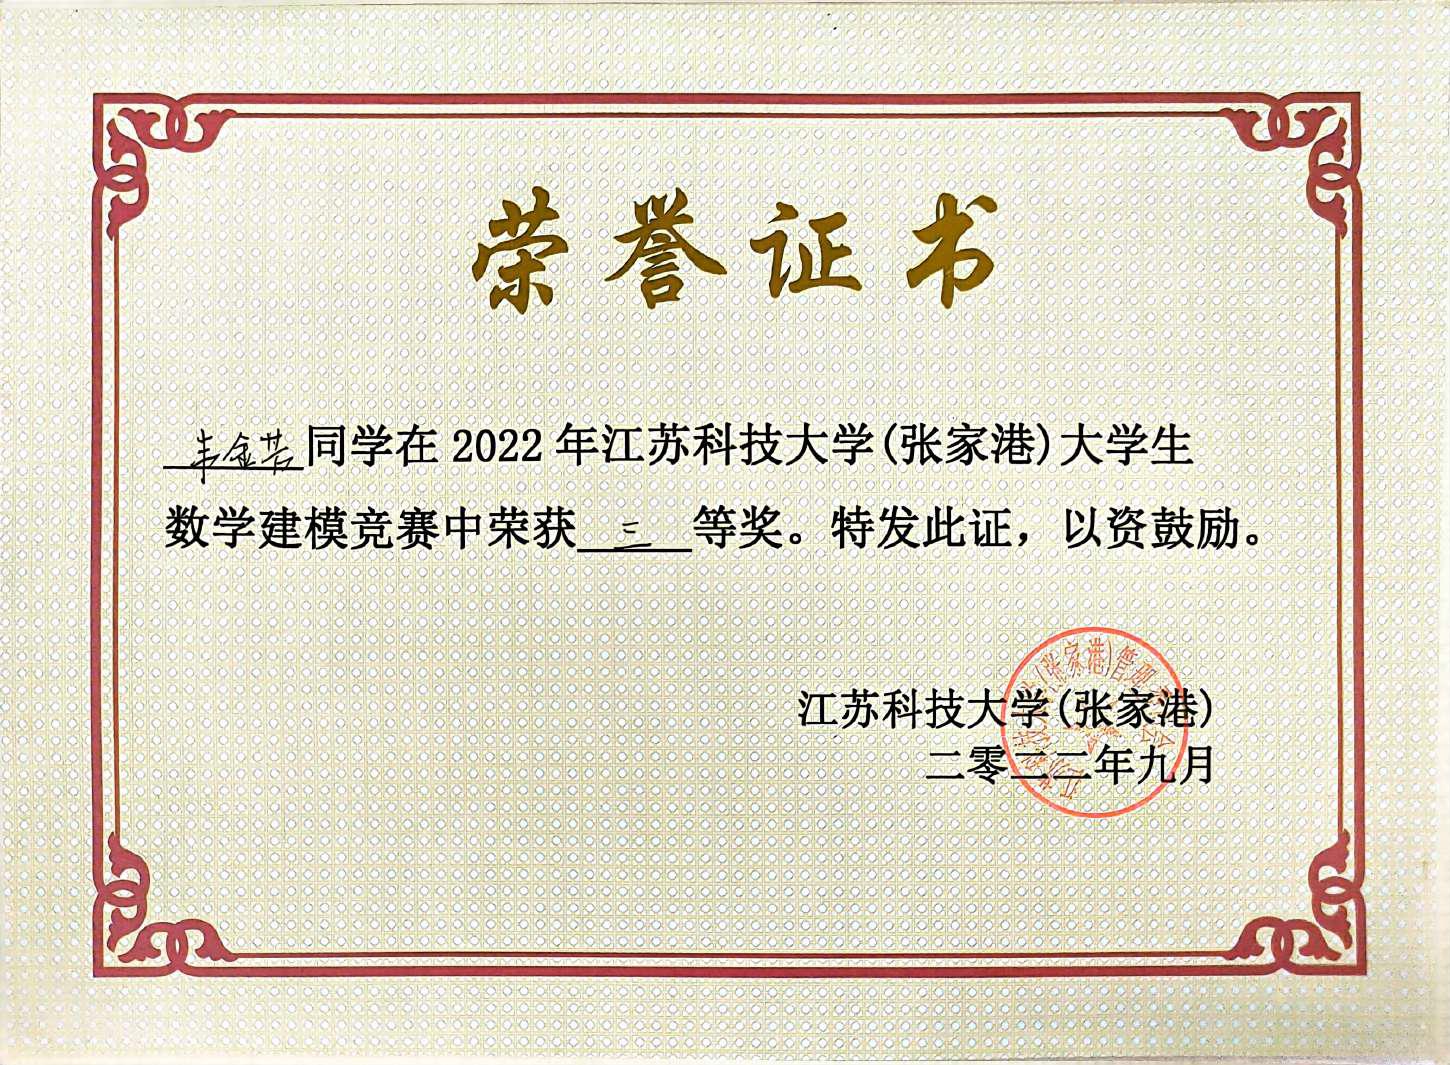 荣誉证书
韦金芸同学在2022年江苏科技大学(张家港)大学生
数学建模竞赛中荣获三等奖。特发此证，以资鼓励。
江苏科技大学(张家港)
二零二二年九月
江苏科技大学(张家港)管理委员会